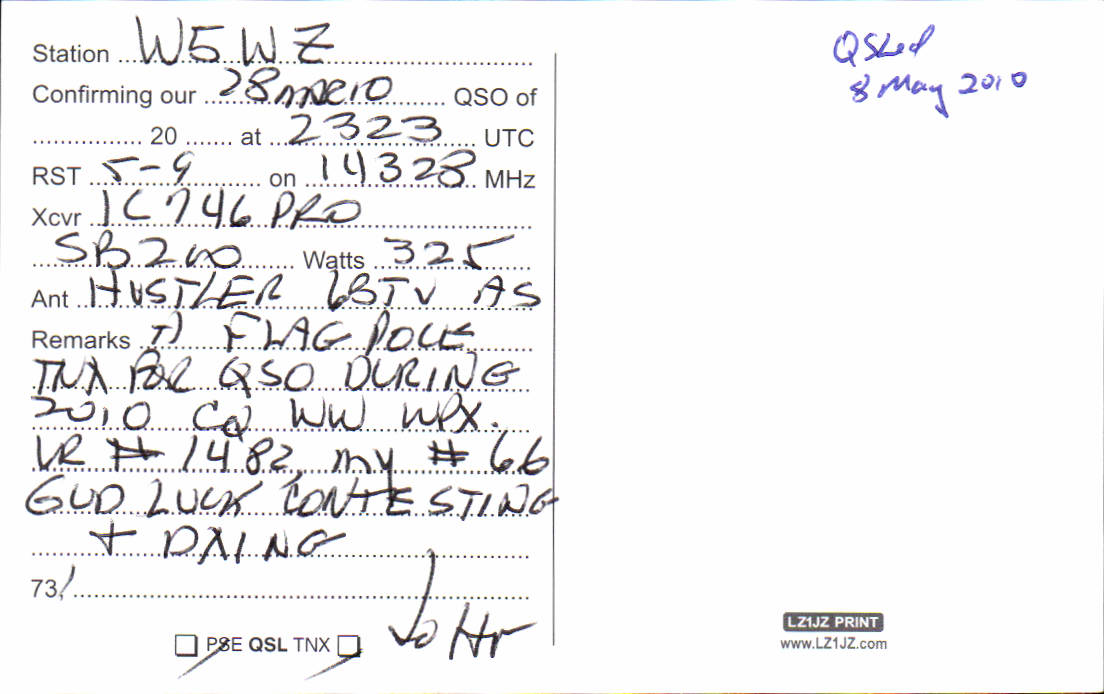 Station W5WZ
Confirming our 28 MAR 10 QSO of
20 at 2323 UTC
RST 5-9 on 14328 MHz
Xcvr IC746 PRO
SB200 Watts 325
Ant HUSTLER 6BTV AS
Remarks FLAG POLE
TNX FOR QSO DURING
2010 CQ WW WPX.
UR # 1482, my # 66
GUD LUCK CONTESTING
+ DXING
73,
PSE QSL TNX
QSLed
8 May 2010
LZ1JZ PRINT
www.LZ1JZ.com